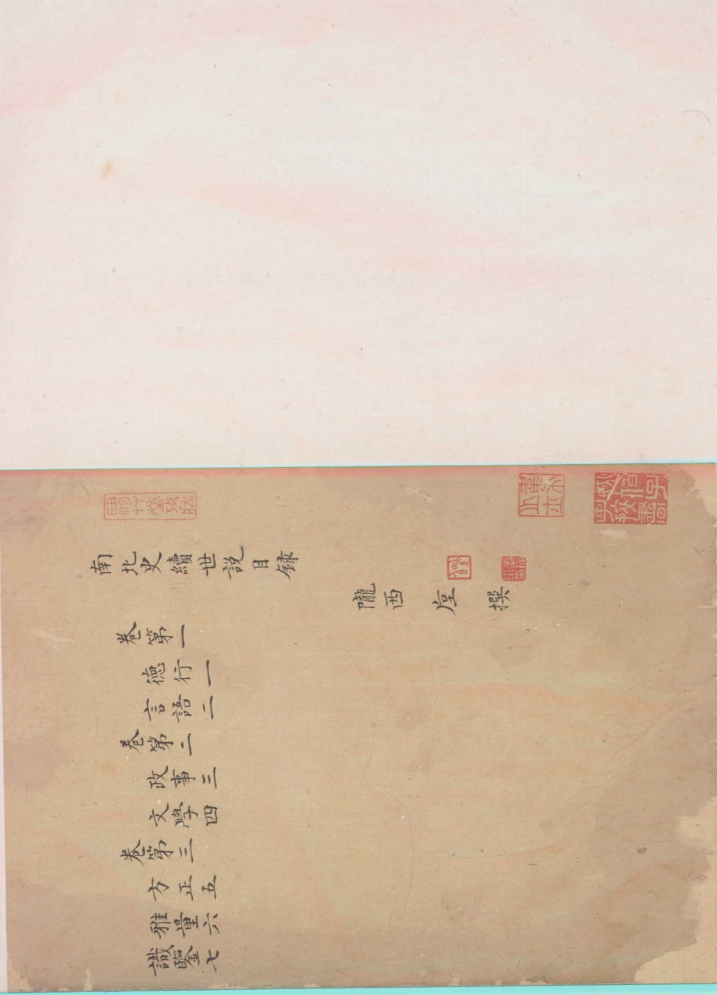 南北史續世說目錄
隴西 垕 撰
卷第一
德行一
言語二
卷第二
政事三
文學四
卷第三
方正五
雅量六
識鑒七